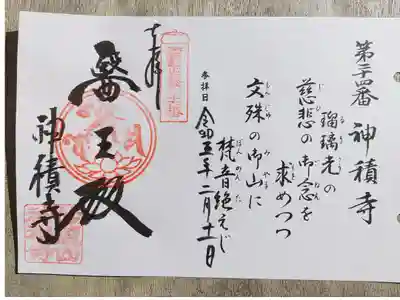 第二十四番 神積寺
瑠璃光の
慈悲の御念を
求めつつ
文殊の御山に
梵音絶えじ
参拝日 令和五年 二月十一日
奉拝
醫王殿
神積寺